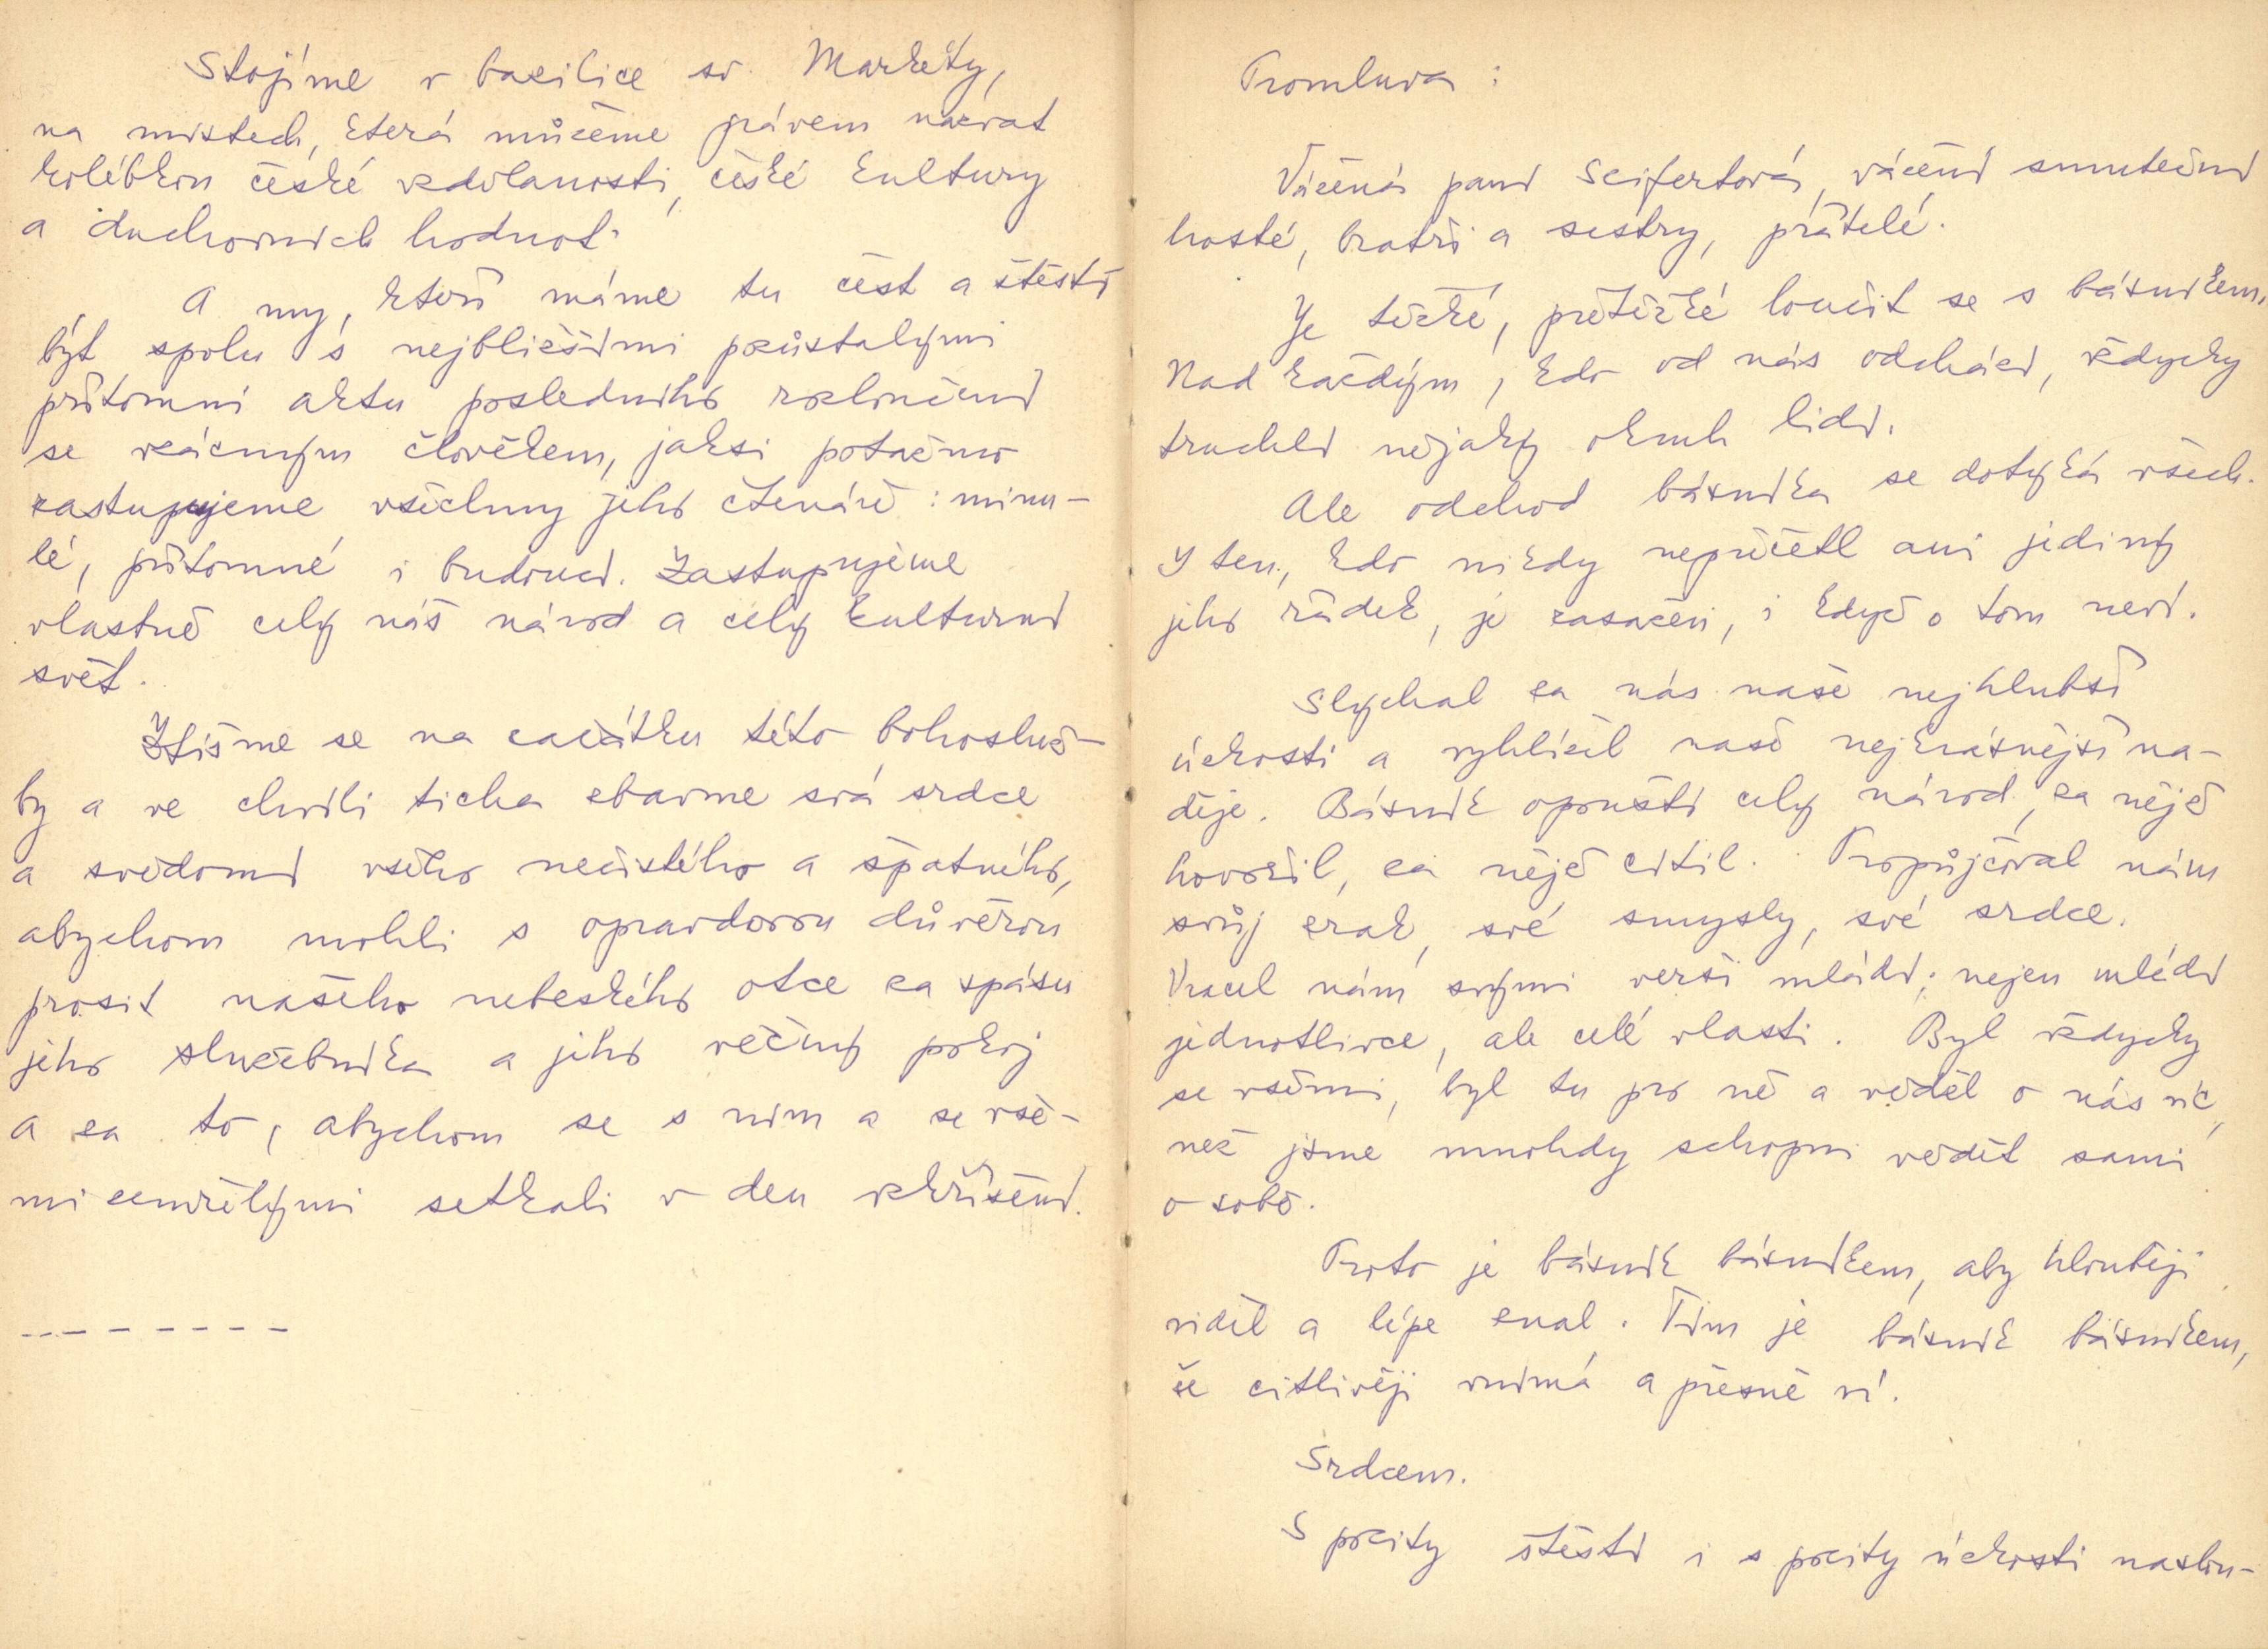 Stojíme v bazilice sv. Markéty,
na místech, která můžeme právem nazvat
kolébkou české vzdělanosti, české kultury
a duchovních hodnot.
A my, kteří máme tu čest a štěstí
být spolu s nejbližšími pozůstalými
přítomni aktu posledního rozloučení
se vzácným člověkem, jaksi potažmo
zastupujeme všechny jeho čtenáře: minu-
lé, přítomné i budoucí. Zastupujeme
vlastně celý náš národ a celý kulturní
svět.
Ztišme se na začátku této bohosluž-
by a ve chvíli ticha zbavme svá srdce
a svědomí všeho nečistého a špatného,
abychom mohli s opravdovou důvěrou
prosit našeho nebeského otce za spásu
jeho služebníka a jeho věčný pokoj
a za to, abychom se s ním a se vše-
mi zemřelými setkali v den vzkříšení.
---------
Promluva:
Vážená paní Seifertová, vážení smuteční
hosté, bratři a sestry, přátelé.
Je těžké, přetěžké loučit se s básníkem.
Nad každým, kdo od nás odchází, vždycky
truchlí nějaký okruh lidí.
Ale odchod básníka se dotýká všech.
I ten, kdo nikdy nepřečetl ani jediný
jeho řádek, je zasažen, i když o tom neví.
Slýchal za nás naše nejhlubší
úzkosti a vyhlížel naše nejkrásnější na-
děje. Básník opouští celý národ, za nějž
hovořil, za nějž cítil. Propůjčoval nám
svůj zrak, své smysly, své srdce.
Vracel nám svými verši mládí; nejen mládí
jednotlivce, ale celé vlasti. Byl vždycky
se všemi, byl tu pro ně a věděl o nás víc,
než jsme mnohdy schopni vědět sami
o sobě.
Proto je básník básníkem, aby hlouběji
viděl a lépe znal. Tím je básník básníkem,
že citlivěji vnímá a přesně ví.
Srdcem.
S pocity štěstí i s pocity úzkosti naslou-